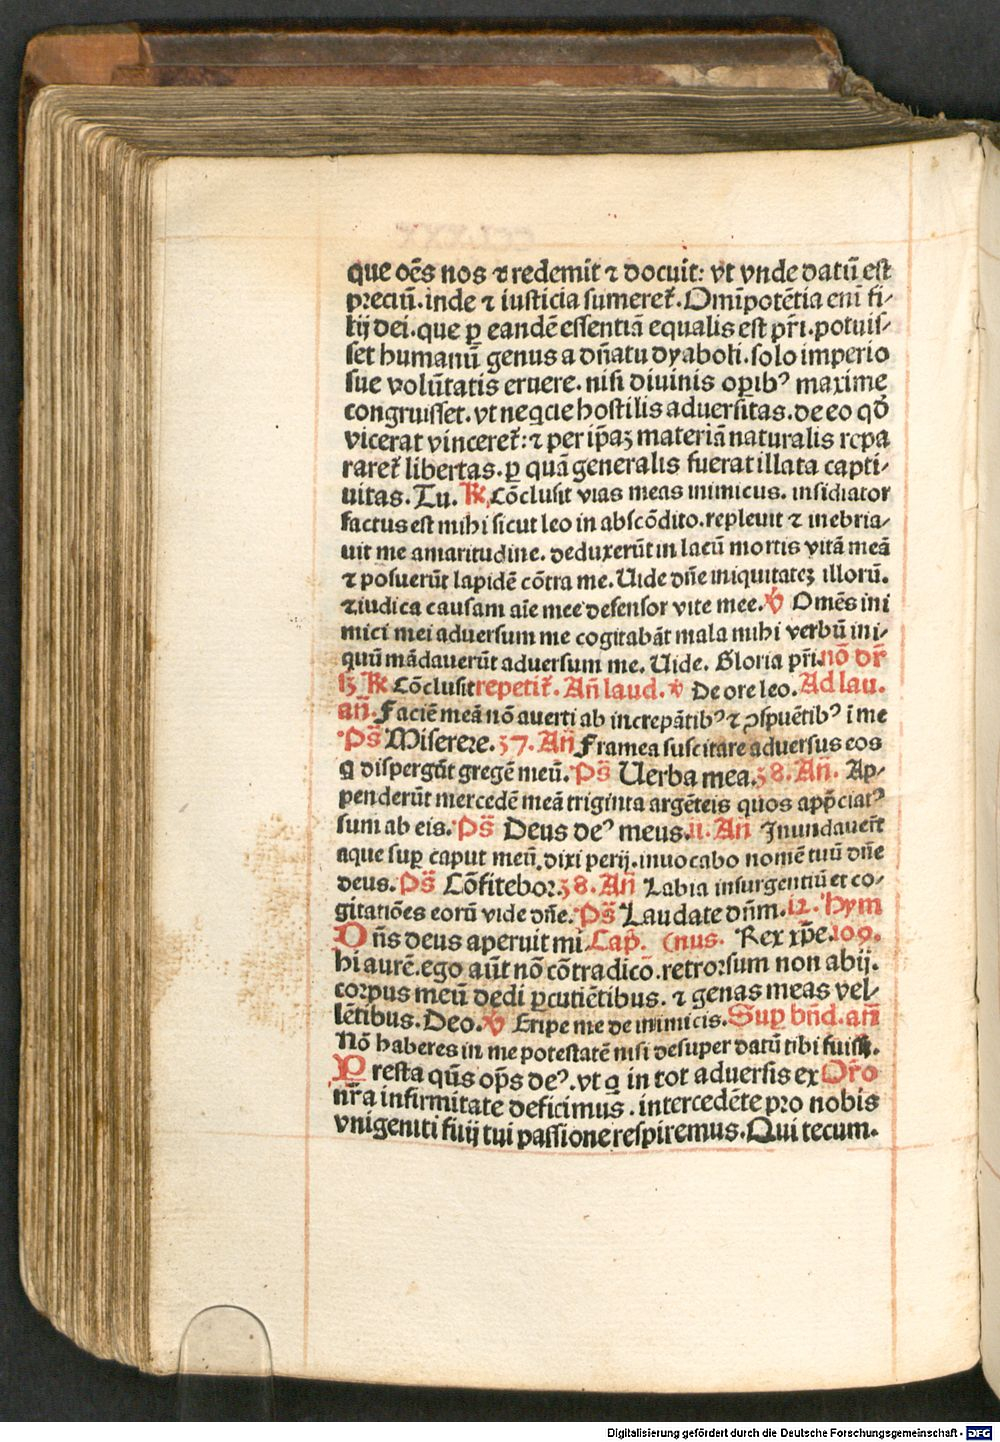 que oēs nos ⁊ redemit ⁊ docuit: vt vnde datū est
preciū. inde ⁊ iusticia sumeret᷑. Omīpotētia eni fi-
lij dei. que ꝑ eandē essentiā equalis est pr̄i. potuis-
set humanū genus a dn̄atu dyaboli. solo imperio
sue volūtatis eruere. nisi diuinis oꝑibꝰ maxime
congruisset. vt neqcie hostilis aduersitas. de eo qd̄
vicerat vinceret᷑: ⁊ per ip̄aꝫ materiā naturalis repa
raret᷑ libertas. ꝑ quā generalis fuerat illata capti-
uitas. Tu. ℟ Cōclusit vias meas inimicus. insidiator
factus est mihi sicut leo in abscōdito. repleuit ⁊ inebria-
uit me amaritudine. deduxerūt in lacū mortis vitā meā
⁊ posuerūt lapidē cōtra me. Uide dn̄e iniquitateꝫ illorū.
⁊ iudica causam aīe mee defensor vite mee. ℣ Omēs ini
mici mei aduersum me cogitabāt mala mihi verbū ini-
quū mādauerūt aduersum me. Uide. Gloria pr̄i. nō dr̄
sꝫ ℟ Cōclusit repetit᷑. An̄ laud. ℣ De ore leo. Ad lau.
an̄. Faciē meā nō auerti ab increpātibꝰ ⁊ ꝯspuētibꝰ ī me
Ps̄ Miserere. 37. An̄ Framea suscitare aduersus eos
q dispergūt gregē meū. Ps̄ Uerba mea. 38. An̄. Ap-
penderūt mercedē meā triginta argēteis quos app̄ciatꝰ
sum ab eis. Ps̄ Deus deꝰ meus. 11. An̄ Inundauerūt
aque suꝑ caput meū. dixi perij. inuocabo nomē tuū dn̄e
deus. Ps̄ Cōfitebor. 38. An̄ Labia insurgentiū et co-
gitatiōes eorū vide dn̄e. Ps̄ Laudate dn̄m. 12. Hym
Dn̄s deus aperuit mi Cap̄. (nus. Rex xp̄e. 109.
hi aurē. ego aūt nō cōtradico. retrorsum non abij.
corpus meū dedi ꝑcutiētibus. ⁊ genas meas vel-
lētibus. Deo. ℣ Eripe me de inimicis. Suꝑ bn̄d. an̄
Nō haberes in me potestatē nisi desuper datū tibi fuiss.
Presta qūs op̄s deꝰ. vt q in tot aduersis ex Or̄o
nr̄a infirmitate deficimus. intercedēte pro nobis
vnigeniti filij tui passione respiremus. Qui tecum.
Digitalisierung gefördert durch die Deutsche Forschungsgemeinschaft - DFG